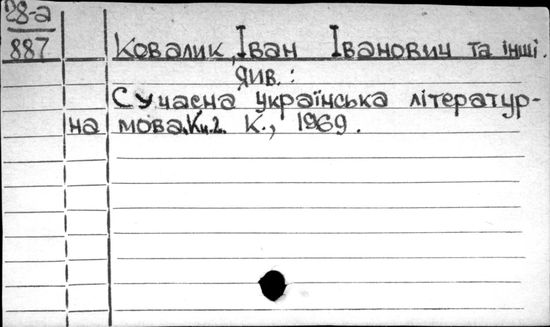 28-а
887
Ковалик, Іван Іванович та інші.
Див.:
Сучасна українська літератур-
на мова. Кн.2. К., 1969.